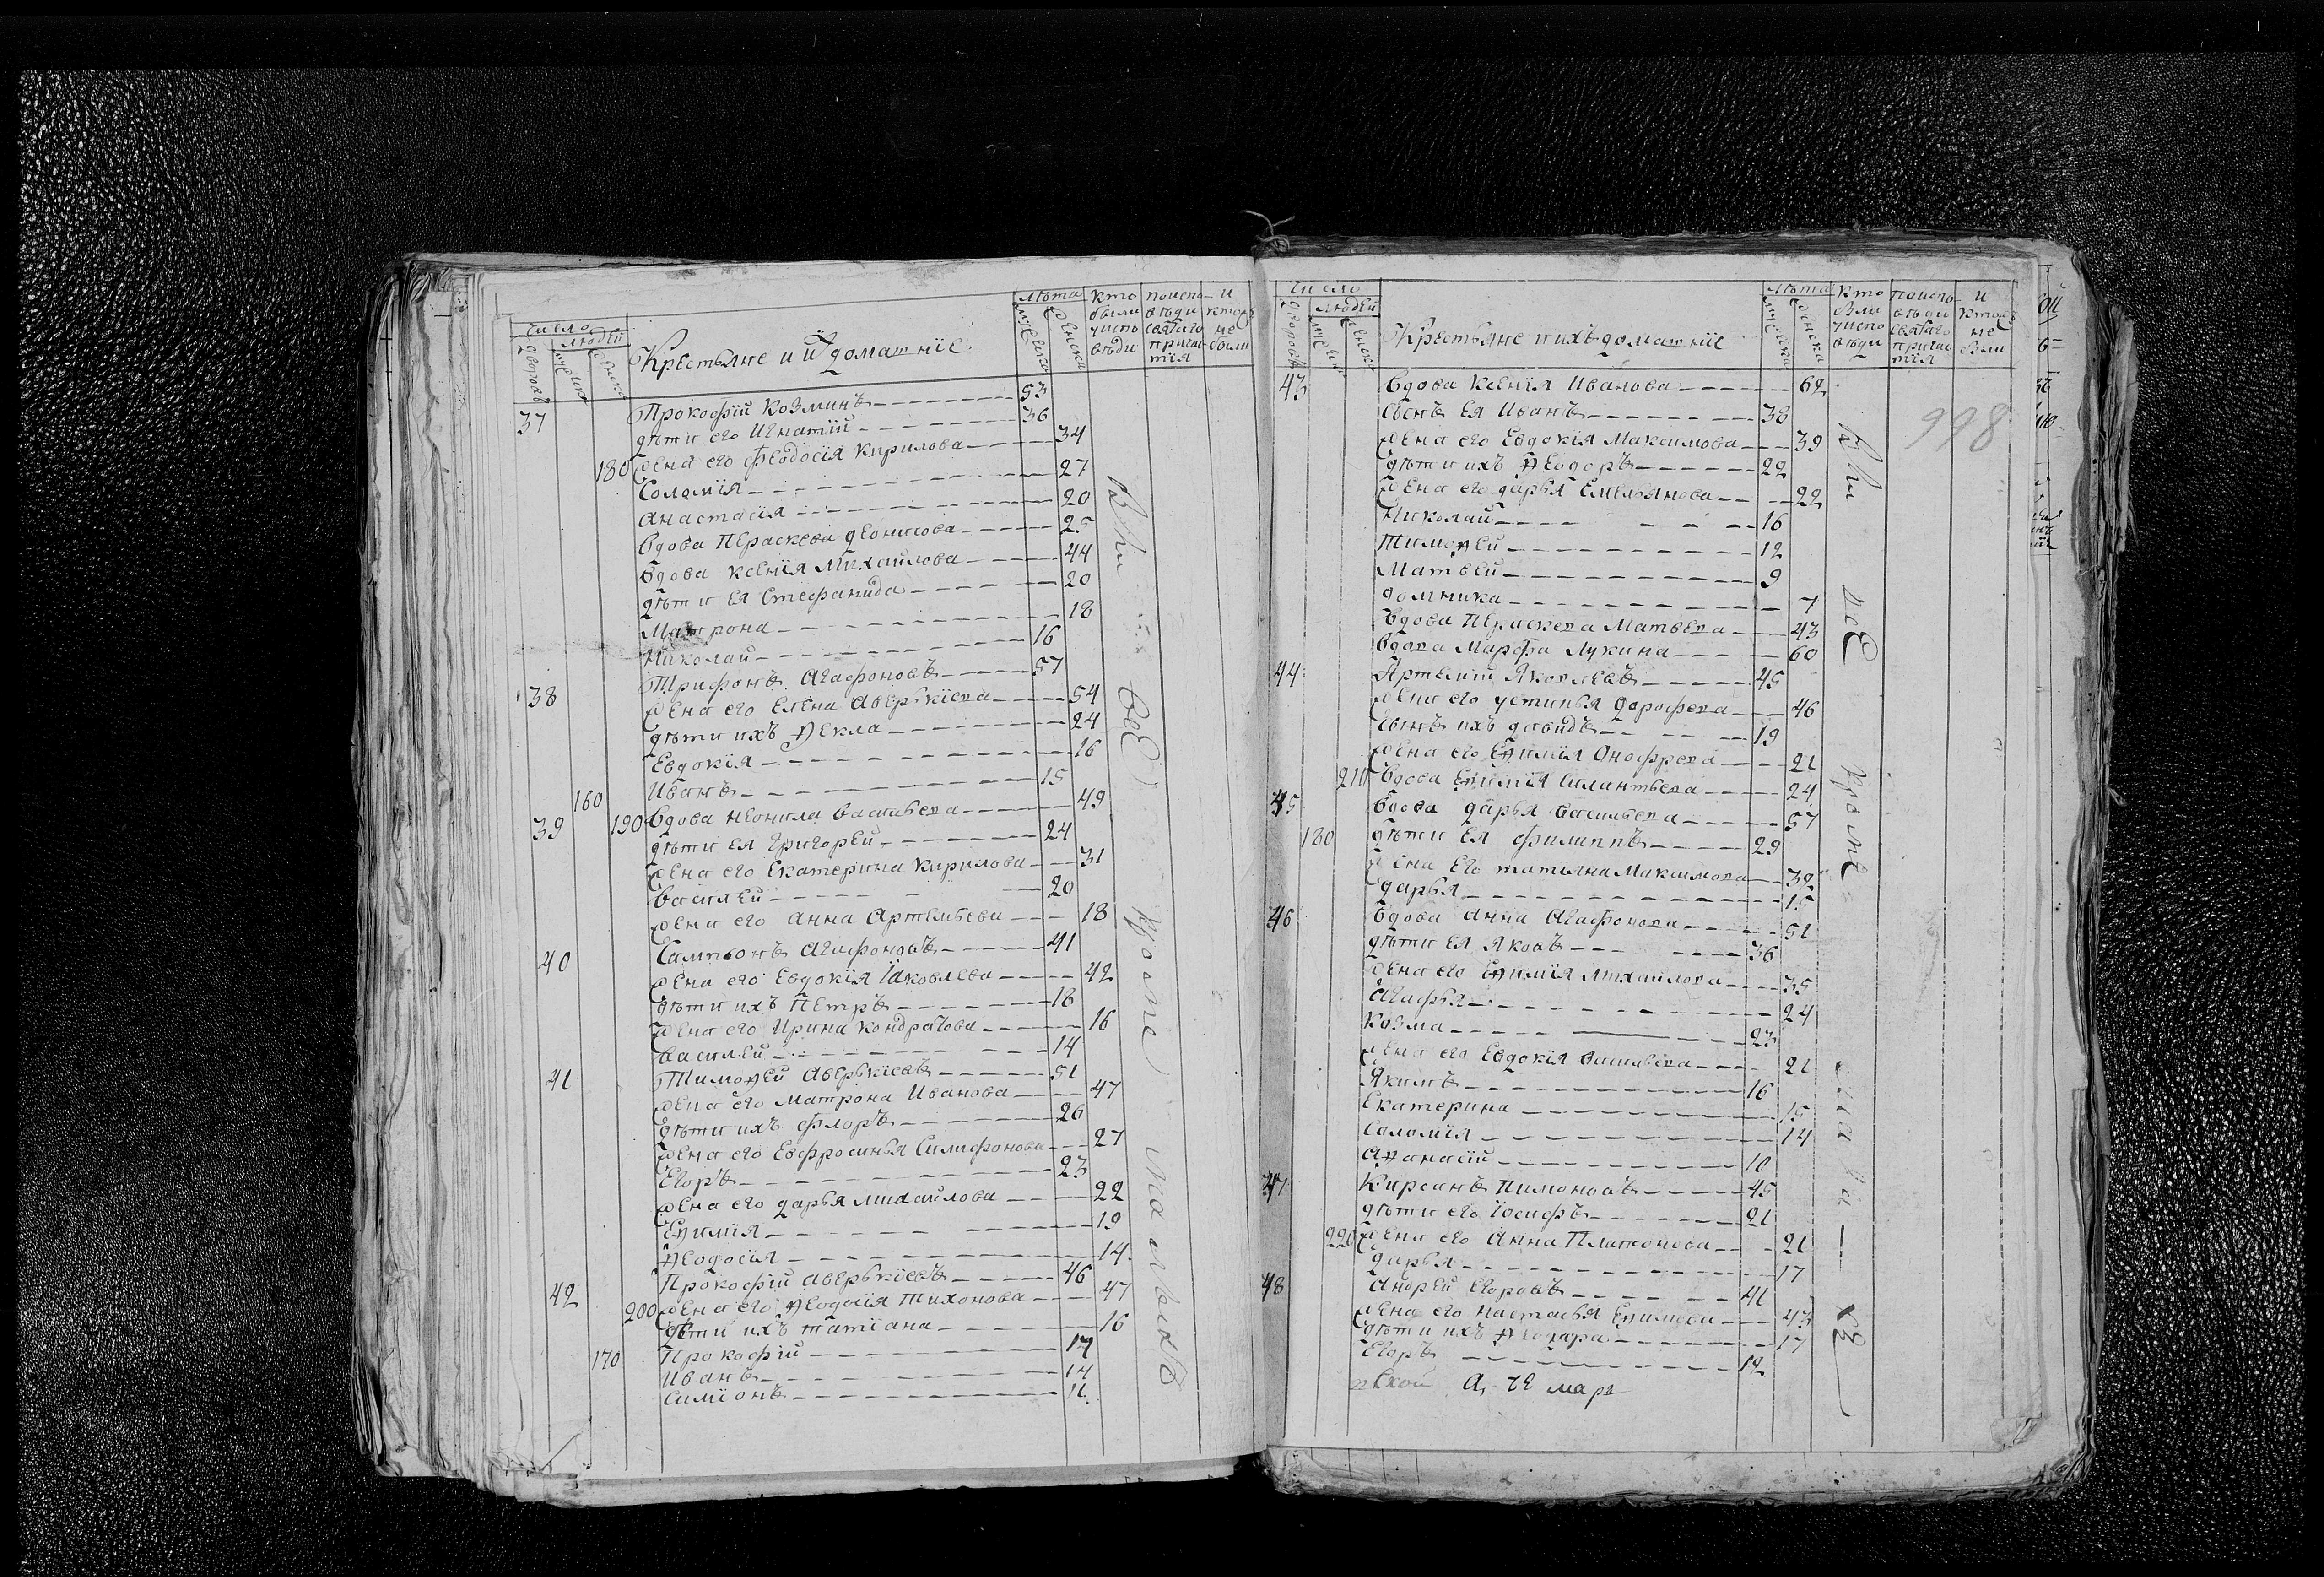 число
людей
дворовъ
мужеска
женска
Крестьяне и ихъ домашнїе.
лѣта
мужеска
женска
кто были у исповѣди
по исповѣди и святаго причастїя
и кто не были
37 Прокофїй Козминъ 53
дѣти его Игнатїй 36
180 жена его Феодосїя Кирилова 34
Соломїя 27
Анастасїя 20
вдова Пераскева Деонисова 25
вдова Ксенїя Михайлова 44
дѣти ея Стефанида 20
Матрона 18
Николай 16
38 Трифонъ Агафоновъ 57
жена его Елена Аверькїева 54
дѣти ихъ Ѳекла 24
Евдокїя 16
160 Иванъ 15
39 190 вдова Неонила Васильева 49
дѣти ея Григорей 24
жена его Екатерина Кирилова 31
Василей 20
жена его Анна Артемьева 18
40 Сампсонъ Агафоновъ 41
жена его Евдокїя Їаковлева 42
дѣти ихъ Петръ 18
жена его Ирина Кондратова 16
Василей 14
41 Тимоѳей Аверькїевъ 51
жена его Матрона Иванова 47
дѣти ихъ Флоръ 26
жена его Евфросинья Силифонова 27
Егоръ 23
жена его Дарья Михайлова 22
Еѳимїя 19
Ѳеодосїя 14
42 Прокофїй Аверькїевъ 46
200 жена его Ѳеодосїя Тихонова 47
дѣти ихъ Татїана 16
170 Прокофїй 17
Иванъ 14
Симїонъ 11
Были все кроме малыхъ
число
людей
дворовъ
мужеска
женска
Крестьяне и ихъ домашнїе
лѣта
мужеска
женска
кто были у исповѣди
по исповѣди и святаго причастїя
и кто не были
998
43 вдова Ксенїя Иванова 62
сынъ ея Иванъ 38
жена его Евдокїя Максимова 39
дѣти ихъ Ѳеодоръ 22
жена его Дарья Емельянова 22
Николай 16
Тимоѳей 12
Матвей 9
Домника 7
вдова Параскева Матвева 43
вдова Марфа Лукина 60
44 Артемїй Яковлевъ 45
жена его Устинья Дорофева 46
сынъ ихъ Давидъ 19
жена его Еѳимїя Онофрева 21
210 вдова Еѳимїя Силантьева 24
45 вдова Дарья Васильева 57
180 дѣти ея Филиппъ 29
жена его Татьяна Максимова 32
Дарья 15
46 вдова Анна Агафонова 51
дѣти ея Яковъ 36
жена его Еѳимїя Михайлова 35
Агафья 24
Козма 23
жена его Евдокїя Васильева 21
Якимъ 16
Екатерина 15
Соломїя 14
Аѳанасїй 10
47 Кирсанъ Пимоновъ 45
дѣти его Їосифъ 21
220 жена его Анна Платонова 21
Дарья 17
48 Андрей Егоровъ 41
жена его Настасья Еѳимова 43
дѣти ихъ Ѳеодора 17
Егоръ 12
Были все кроме малыхъ